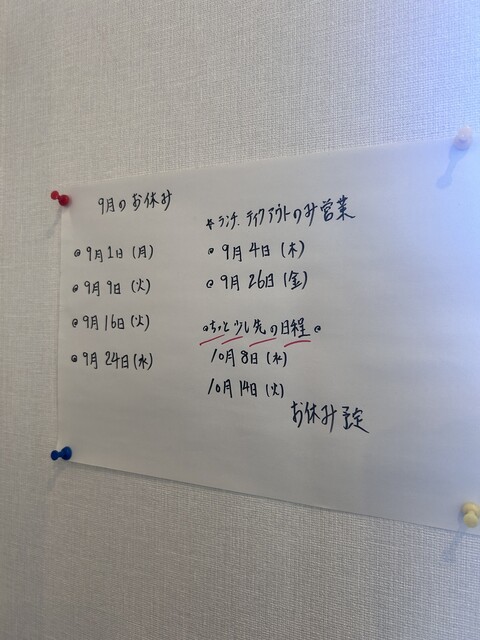 9月のお休み
@ 9月1日(月)
@ 9月9日(火)
@ 9月16日(火)
@ 9月24日(水)
☆ランチ、テイクアウトのみ営業
@ 9月4日(木)
@ 9月26日(金)
@ちょっと少し先の日程@
10月8日(水)
10月14日(火)
お休み予定